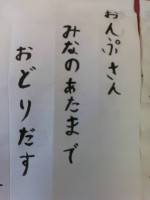 おんぷさん
みなのあたまで
おどりだす